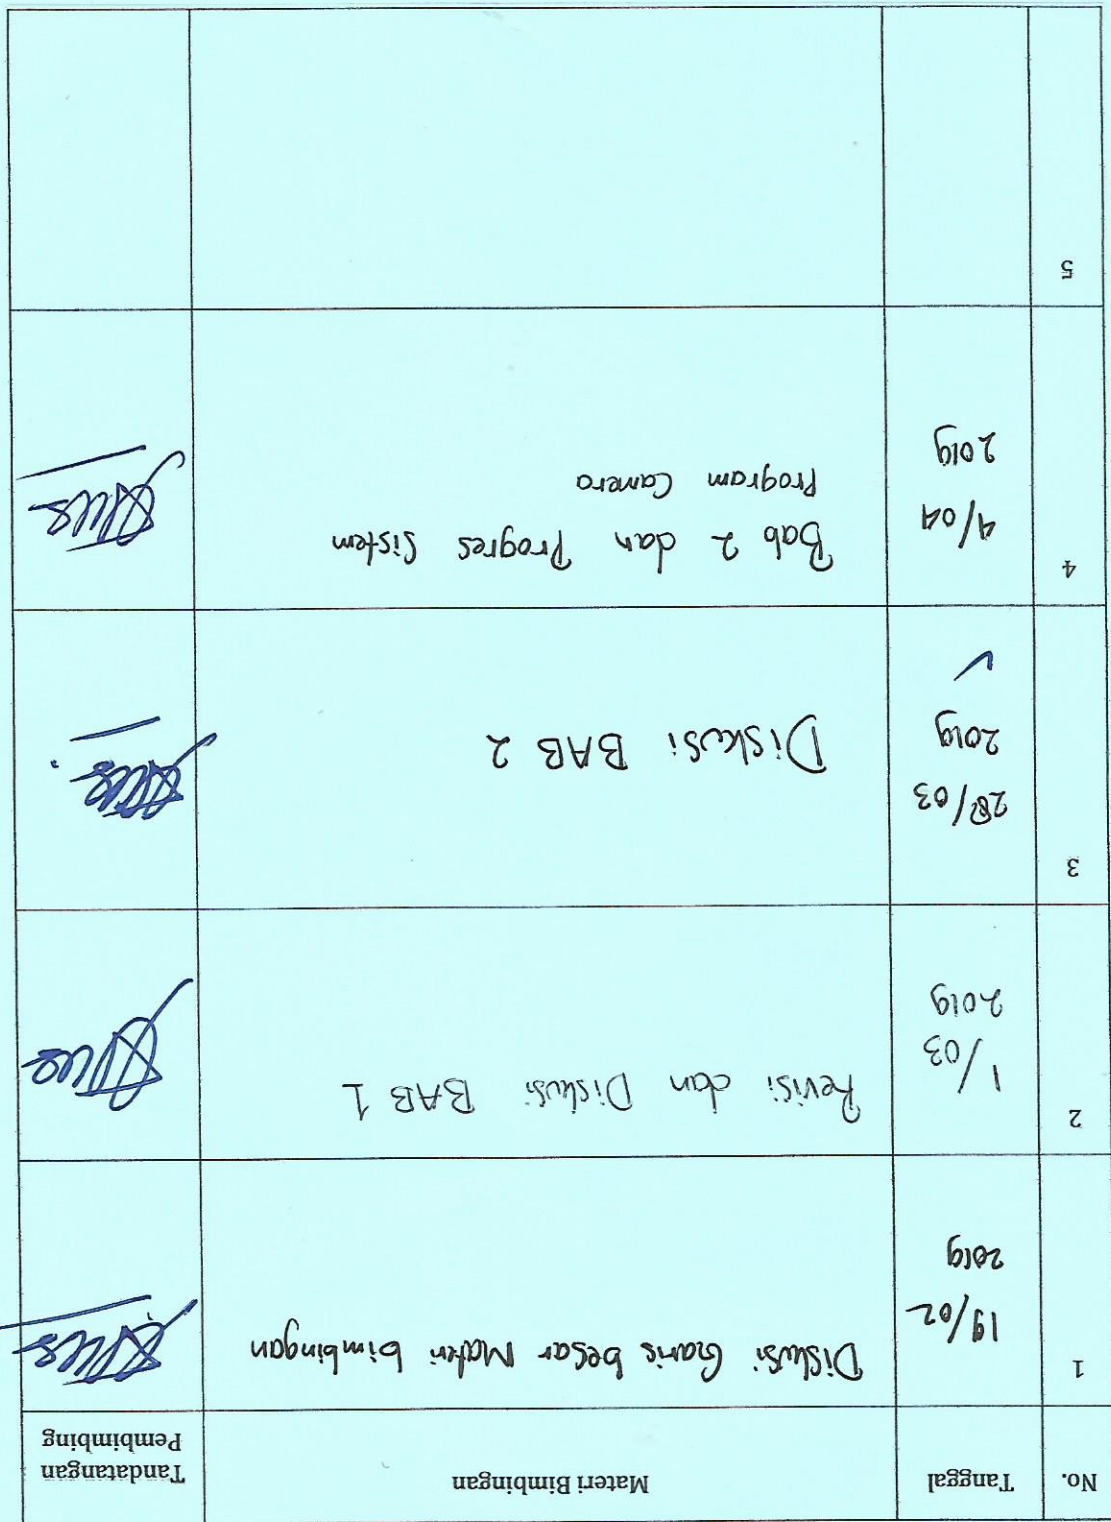 No. Tanggal Materi Bimbingan Tandatangan
Pembimbing
1
19/02 Diskusi Garis besar Materi bimbingan
2019
2
1/03 Revisi dan Diskusi BAB 1
2019
3
28/03
2019 Diskusi BAB 2
4
4/04 Bab 2 dan Progres Sistem
2019 Program Camera
5